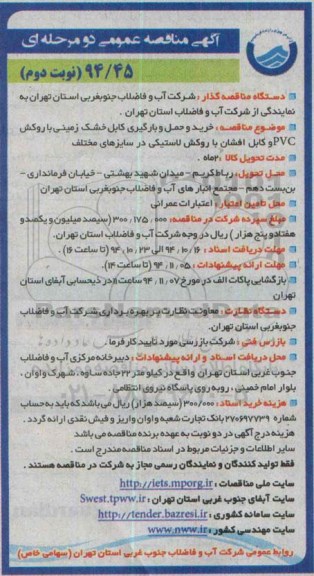 آگهی مناقصه عمومی دو مرحله ای
۹۴/۴۵ (نوبت دوم)
دستگاه مناقصه گذار : شرکت آب و فاضلاب جنوبغربی استان تهران به
نمایندگی از شرکت آب و فاضلاب استان تهران .
موضوع مناقصه : خرید و حمل و بارگیری کابل خشک زمینی با روکش
PVC و کابل افشان با روکش لاستیکی در سایزهای مختلف
مدت تحویل کالا : ۲ماه .
محل تحویل : رباط کریم - میدان شهید بهشتی - خیابان فرمانداری -
بن بست دهم - مجتمع انبار های آب و فاضلاب جنوبغربی استان تهران
محل تامین اعتبار : اعتبارات عمرانی
مبلغ سپرده شرکت در مناقصه : ۳۰۰,۱۷۵,۰۰۰ (سیصد میلیون و یکصد و
هفتاد و پنج هزار ) ریال در وجه شرکت آب و فاضلاب استان تهران.
مهلت دریافت اسناد : ۹۴/۱۰/۱۶ الی ۹۴/۱۰/۲۳ (تا ساعت ۱۶) .
مهلت ارائه پیشنهادات : ۹۴/۱۱/۰۵ (تا ساعت ۱۴).
بازگشایی پاکات الف در مورخ ۹۴/۱۱/۰۷ ساعت ۱۱ در ذیحسابی آبفای استان
تهران
دستگاه نظارت : معاونت نظارت بر بهره برداری شرکت آب و فاضلاب
جنوبغربی استان تهران.
بازرس فنی : شرکت بازرسی مورد تایید کارفرما .
محل دریافت اسناد و ارائه پیشنهادات : دبیرخانه مرکزی آب و فاضلاب
جنوب غربی استان تهران واقع در کیلومتر ۲۲ جاده ساوه ، شهرک واوان ،
بلوار امام خمینی ، روبه روی پاسگاه نیروی انتظامی
هزینه خرید اسناد : ۳۰۰/۰۰۰ (سیصد هزار) ریال می باشد که باید به حساب
شماره ۲۷۰۶۹۷۷۳۹ بانک تجارت شعبه واوان واریز و فیش نقدی ارائه گردد .
هزینه درج آگهی در دو نوبت به عهده برنده مناقصه می باشد
سایر اطلاعات و جزئیات مربوط در اسناد مناقصه مندرج است .
فقط تولید کنندگان و نمایندگان رسمی مجاز به شرکت در مناقصه هستند .
سایت ملی مناقصات : http://iets.mporg.ir
سایت آبفای جنوب غربی استان تهران : Swest.tpww.ir
سایت سامانه کشوری : http://tender.bazresi.ir
سایت مهندسی کشور : www.nww.ir
روابط عمومی شرکت آب و فاضلاب جنوب غربی استان تهران (سهامی خاص)